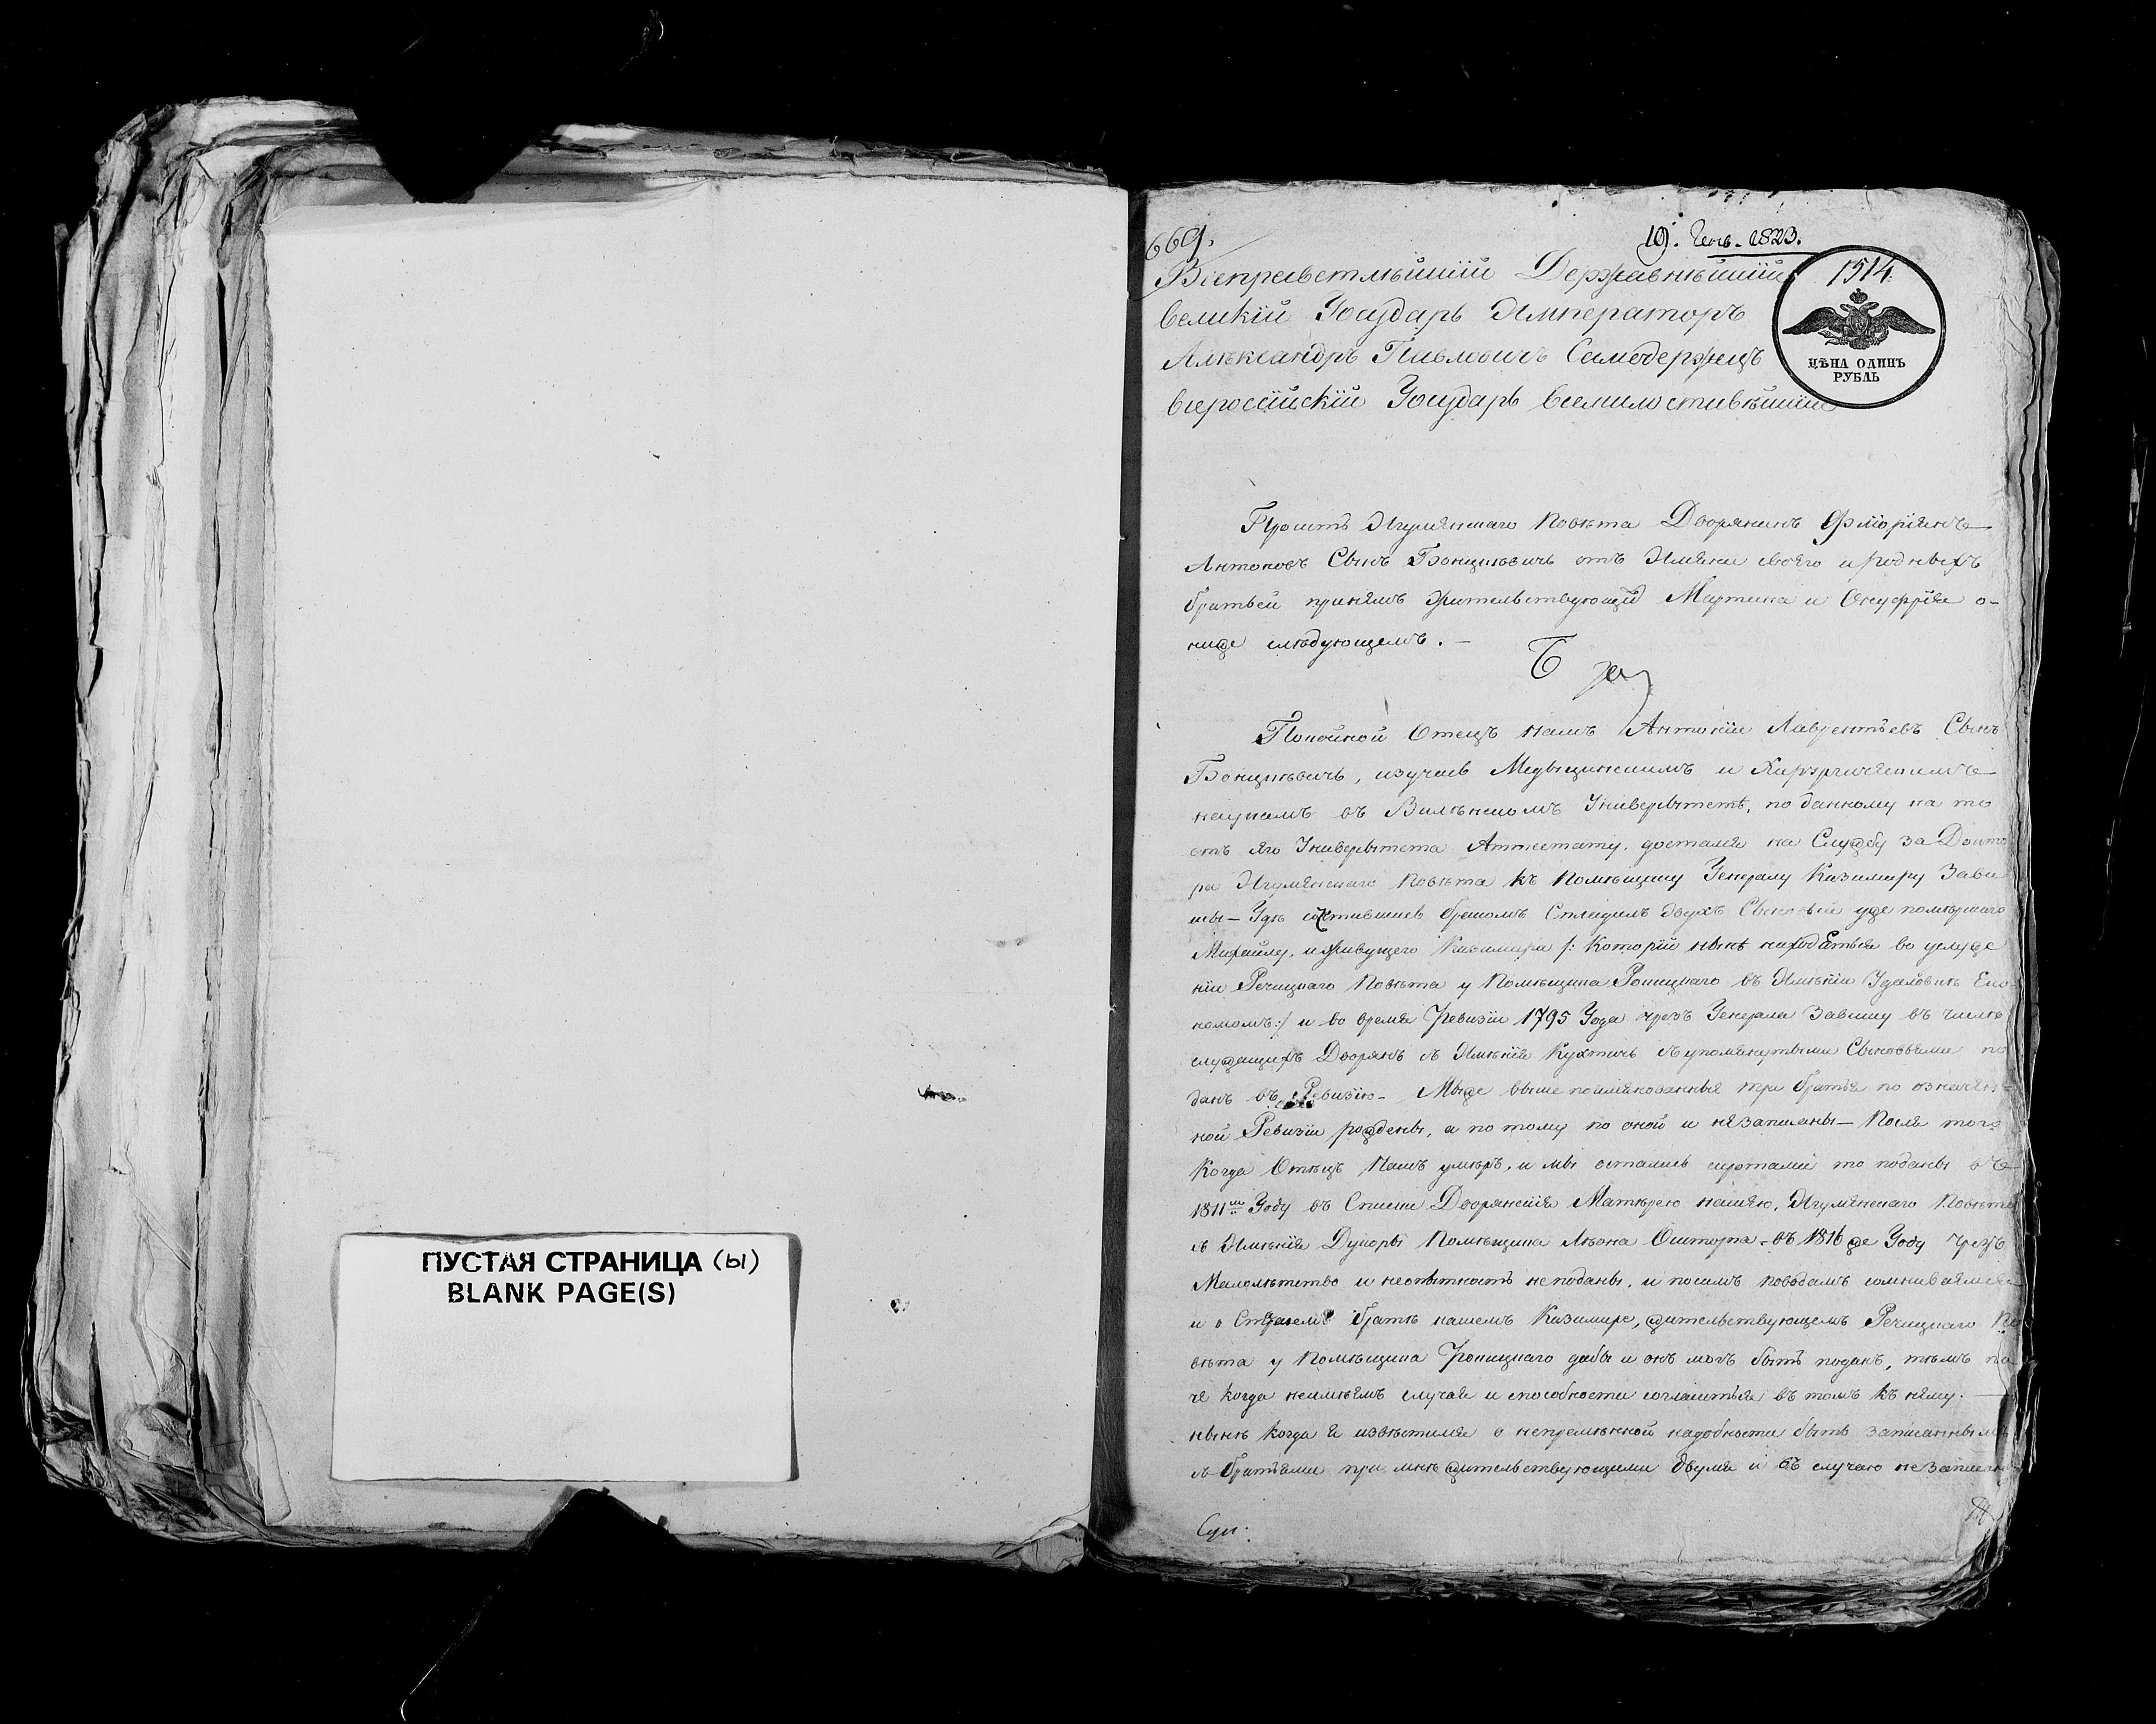 ПУСТАЯ СТРАНИЦА (ы)
BLANK PAGE(S)
669.
19. Генв. 1823.
1514
ЦѢНА ОДИНЪ
РУБЛЬ
Всепресветлѣйшій Державнѣйшій
великій Государь Императоръ
Александръ Павловичъ Самодержецъ
всероссійскій Государь всемилостивѣйшій
Проситъ Игуменскаго Повѣта Дворянинъ Флоріянъ
Антоновъ Сынъ Бонцкевичь отъ Имяни своего и родныхъ
братьей при немъ жительствующихъ Мартина и Онуфрія о
ниже слѣдующемъ. —
Покойной Отецъ нашъ Антоній Лаврентьевъ Сынъ
Бонцкевичь, изучась Медыцинскимъ и Хирургическимъ
наукамъ въ Виленскомъ Университетѣ, по данному на то
отъ яго Университета Аттестату, достался на Службу за Докто
ра Игуменскаго Повѣта къ Помѣщику Генералу Казимиру Зави
ши — Гдѣ сочетавшись бракомъ Сплодилъ двухъ Сыновей уже помершаго
Михайлу, и живущего Казимира /: Которій нынѣ находится во услуже
ніи Речицкаго Повѣта у Помѣщика Роницкаго въ Имѣніи Еко
номомъ:/ и во время Ревизіи 1795 Года чрезъ Генерала Завишу въ числѣ
служащихъ Дворянъ съ Имѣнія Кухтичь съ упомянутыми Сыновьями по
данъ въ Ревизію — Мыже выше поимянованныя три братья по означен
ной Ревизіи рождены, а по тому по оной и не записаны — После того
Когда Отецъ Нашъ умеръ, и мы остались сиротами то поданы въ
1811м Году въ Списки Дворянскія Матерею нашею, Игуменскаго Повѣта
съ Имѣнія Дукоры Помѣщика Леона Ошторпа — въ 1816 же Году чрезъ
Малолѣтство и неопытность не поданы, и посимъ поводамъ сомниваемся
и о Старшемъ братѣ нашемъ Казимире, жительствующемъ Речицкаго По
вѣта у Помѣщика Роницкаго дабы и онъ могъ быть поданъ, тѣмъ па
че когда неимѣемъ случая и способности согласиться въ томъ къ нему. —
нынѣ когда я извѣстился о непремѣнной надобности быть записаннымъ
съ братьями при мнѣ жительствующими двумя и въ случаю не записки